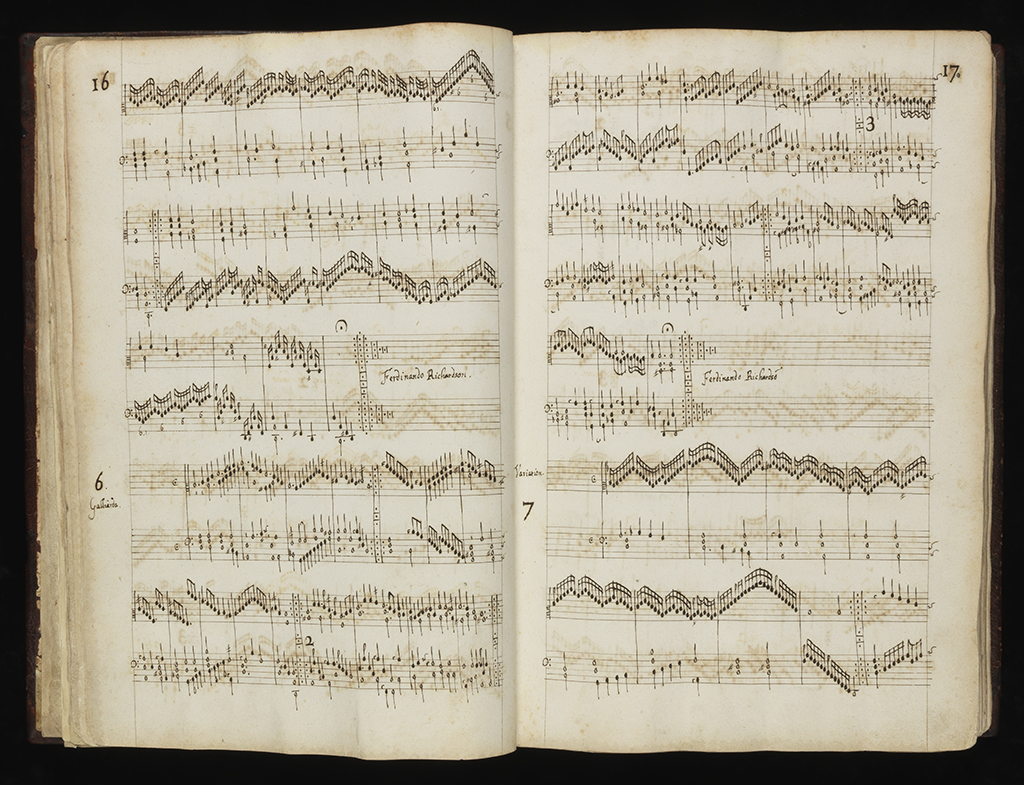 16
Ferdinando Richardson.
6.
Galliarda.
2
17.
3
Ferdinando Richardsõ
Variatio.
7